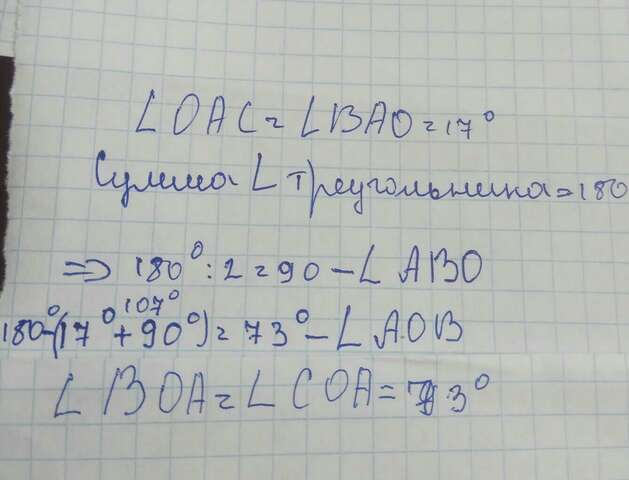 ∠OAC = ∠BAO = 17°
Сумма ∠ треугольника = 180
=> 180° : 2 = 90 - ∠ABO
107°
180°-(17° + 90°) = 73° - ∠AOB
∠BOA = ∠COA = 73°